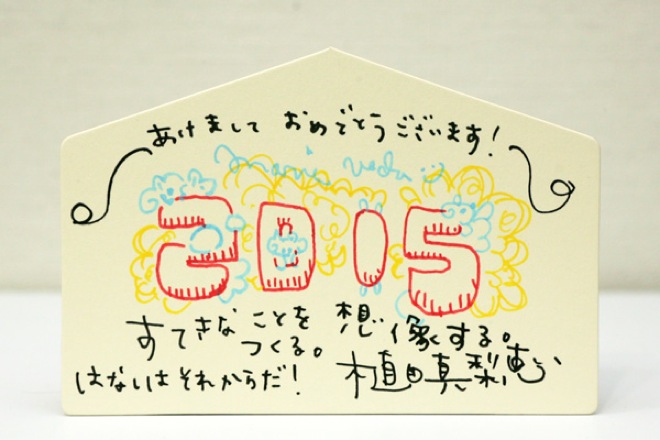 あけまして おめでとうございます!
Maria Ueda
2015
すてきなことを 想像する。
つくる。
はないはそれからだ! 植田真梨恵